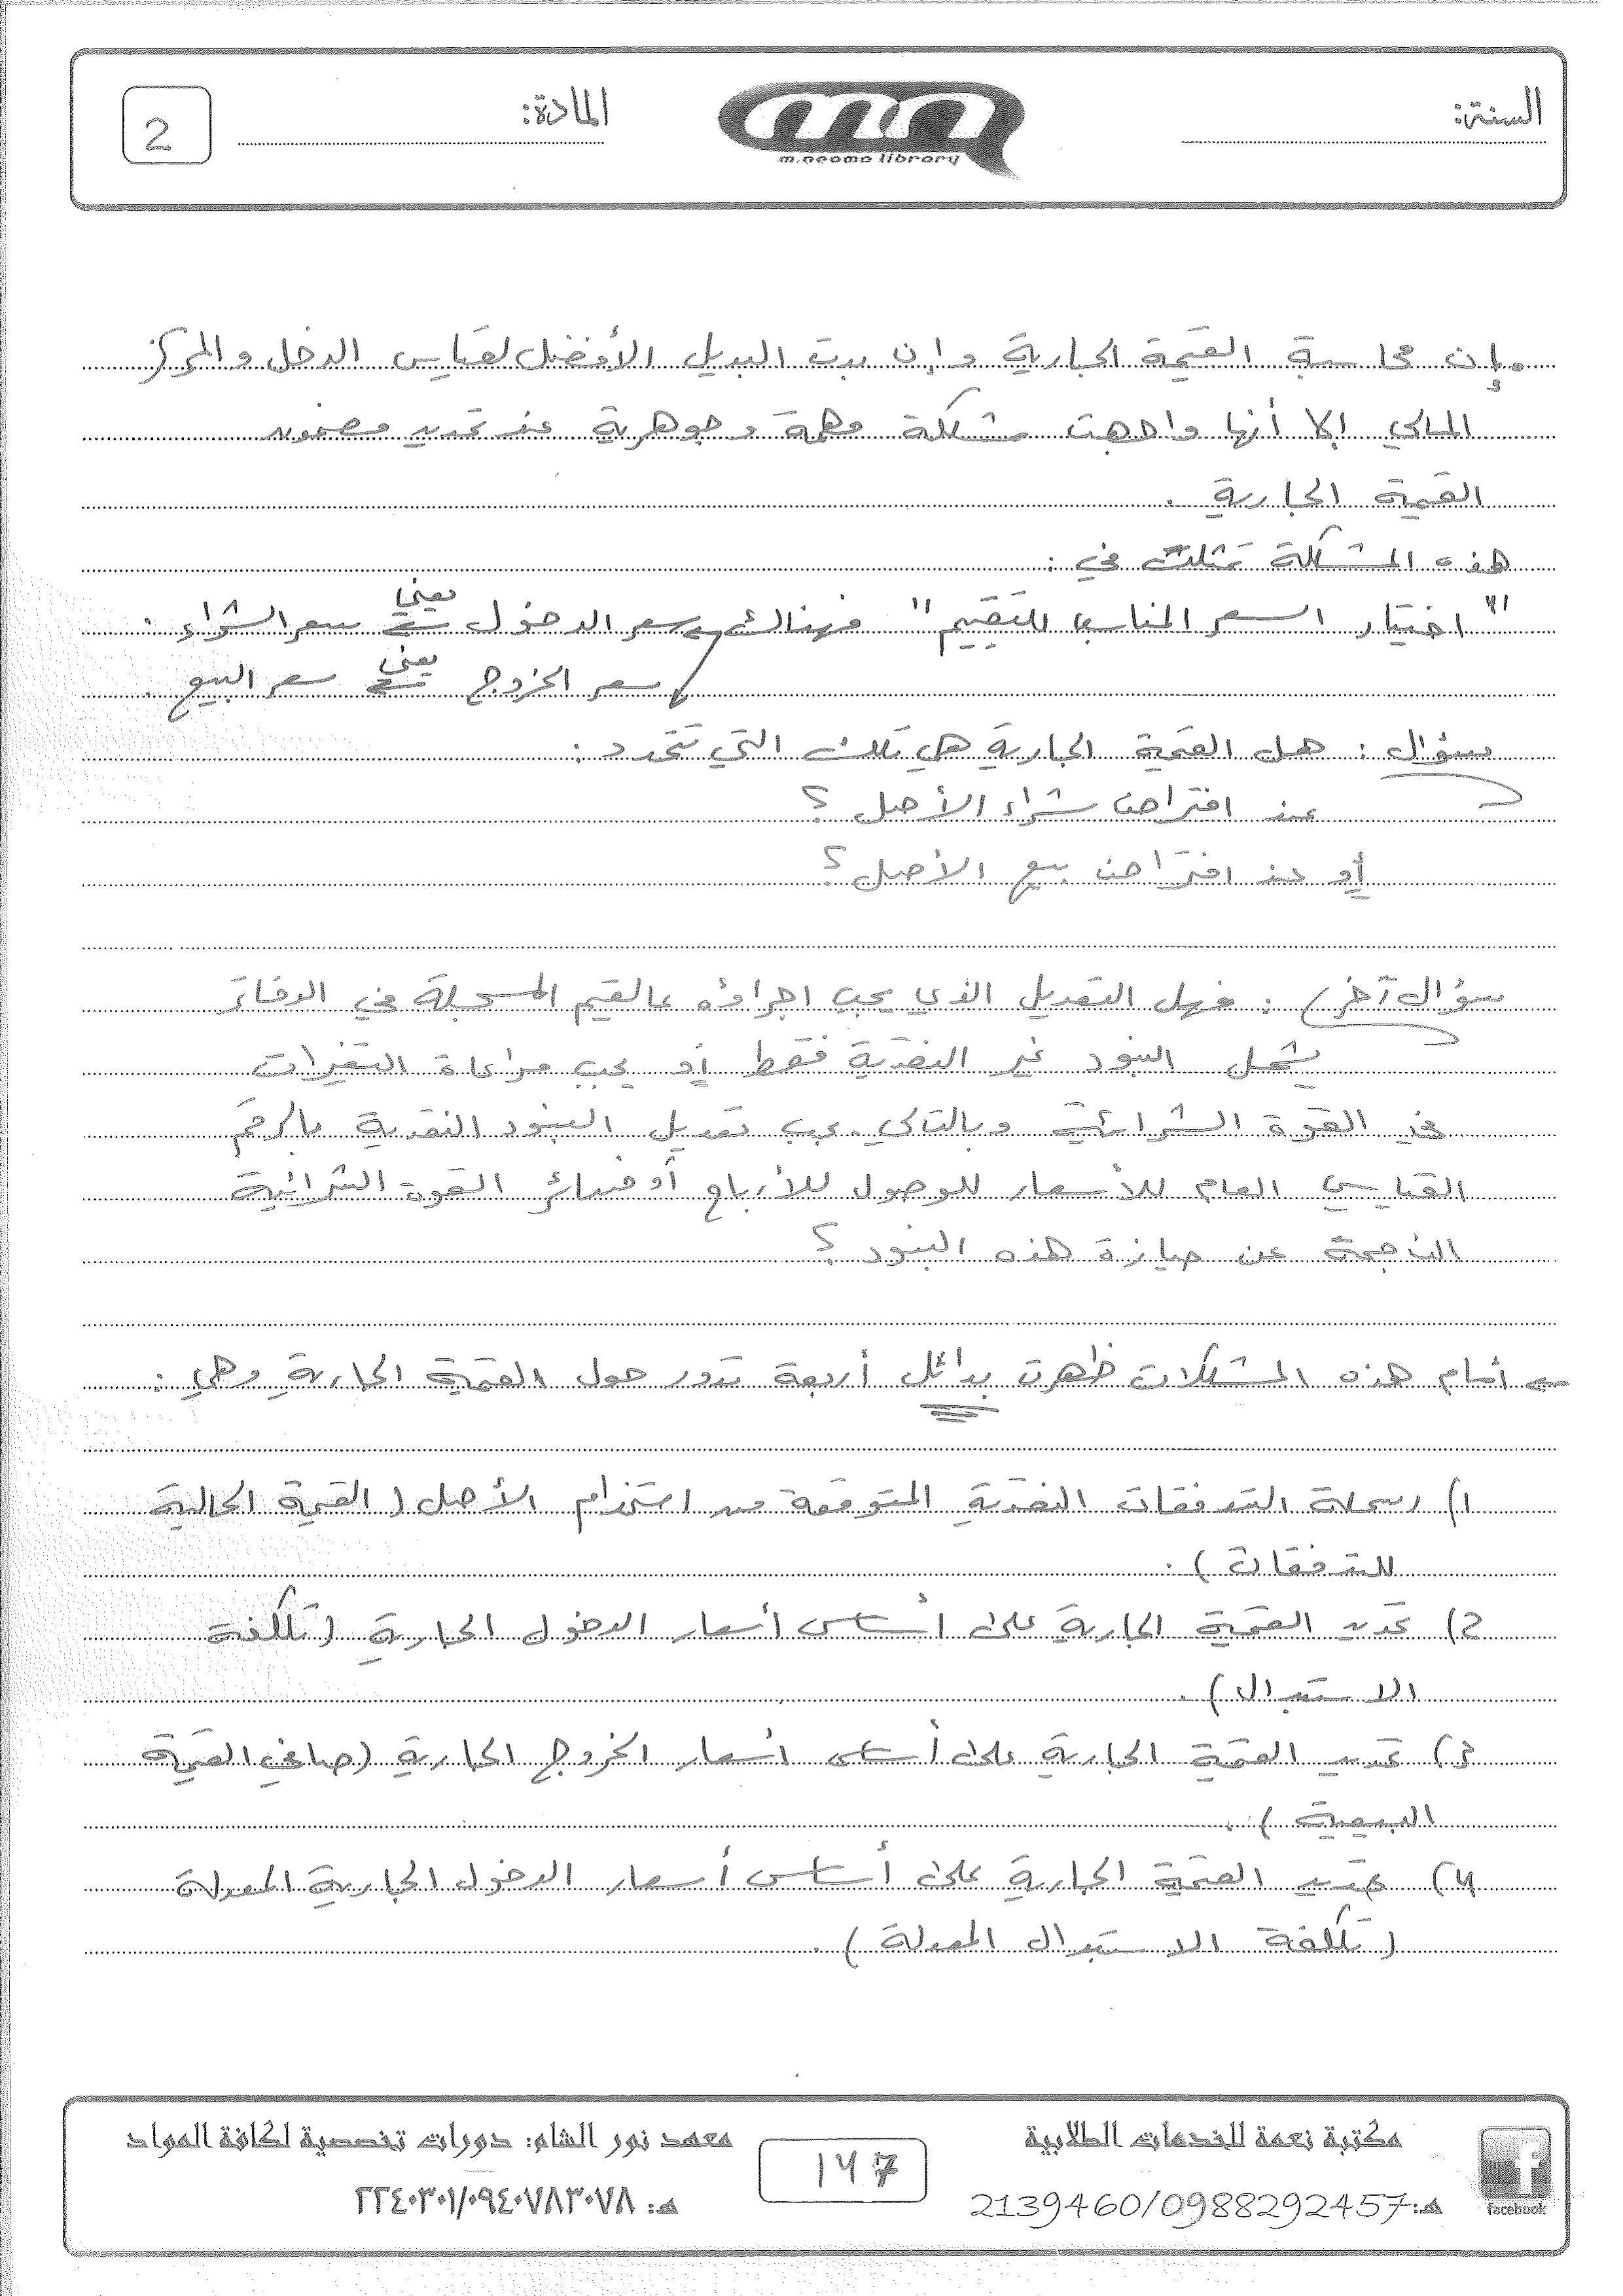 السنة:
m.neama library
المادة:
2
. إن محاسبة القيمة الجارية وإن بدت البديل الأفضل لقياس الدخل والمركز
المالي إلا أنها واجهت مشكلة مهمة وجوهرية عند تحديد مضمون
القيمة الجارية .
هذه المشكلة تمثلت في :
" اختيار السعر المناسب للتقييم " فهنالك سعر الدخول يعني سعر الشراء .
سعر الخروج يعني سعر البيع .
سؤال : هل القيمة الجارية هي تلك التي تتحدد :
عند افتراض شراء الأصل ؟
أو عند افتراض بيع الأصل ؟
سؤال آخر ) : فهل التعديل الذي يجب اجراؤه عالقيم المسجلة في الدفاتر
يشمل البنود غير النقدية فقط أو يجب مراعاة التغيرات
في القوة الشرائية وبالتالي يجب تعديل البنود النقدية بالرقم
القياسي العام للأسعار للوصول للأرباح أو خسائر القوة الشرائية
الناجمة عن حيازة هذه البنود ؟
أمام هذه المشكلات ظهرت بدائل أربعة تدور حول القيمة الجارية وهي :
1) رسملة التدفقات النقدية المتوقعة من استخدام الأصل ( القيمة الحالية
للتدفقات ) .
2) تحديد القيمة الجارية على أساس أسعار الدخول الجارية ( تكلفة
الاستبدال ) .
3) تحديد القيمة الجارية على أساس أسعار الخروج الجارية (صافي القيمة
البيعية ) .
4) تحديد القيمة الجارية على أساس أسعار الدخول الجارية المعدلة
( تكلفة الاستبدال المعدلة ) .
مكتبة نعمة للخدمات الطلابية
هـ: 2139460/0988292457
facebook
147
معهد نور الشام: دورات تخصصية لكافة المواد
هـ: ٢٢٤٠٣٠١/٠٩٤٠٧٨٣٠٧٨